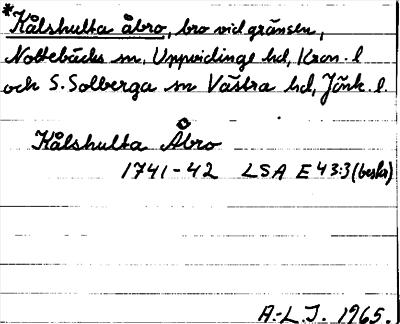 *Kålshulta åbro, bro vid gränsen,
Nottebäcks sn, Uppvidinge hd, Kron. l
och S. Solberga sn Västra hd, Jönk. l.
Kålshulta Åbro
1741-42 LSA E43:3 (beskr)
A.-L.J. 1965.